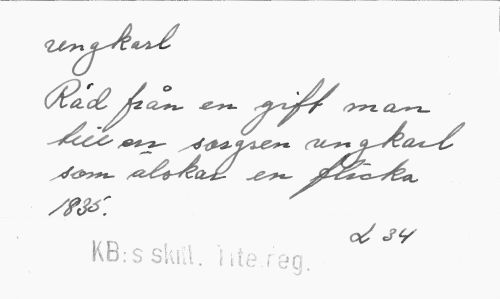 ungkarl
Råd från en gift man
till en sorgsen ungkarl
som älskar en flicka
1835.
L 34
KB:s skill. Tite.reg.